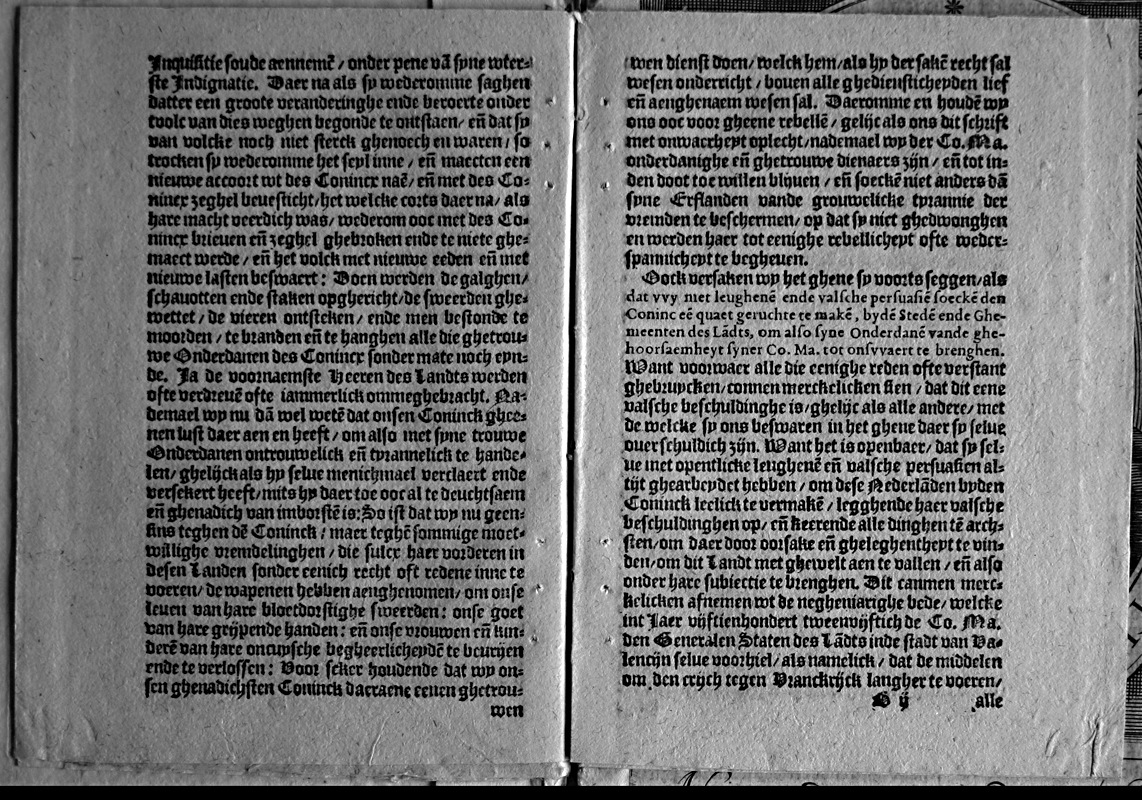 Inquisitie soude aennemē / onder pene vā syne wter-
ste Indignatie. Daer na als sy wederomme saghen
datter een groote veranderinghe ende beroerte onder
tvolc van dies weghen begonde te ontstaen / eñ dat sy
van volcke noch niet sterck ghenoech en waren / so
trocken sy wederomme het seyl inne / eñ maecten een
nieuwe accoort wt des Conincx naē / eñ met des Co-
nincx zeghel bevesticht / het welcke corts daer na / als
hare macht veerdich was / wederom ooc met des Co-
nincx brieuen eñ zeghel ghebroken ende te niete ghe-
maect werde / eñ het volck met nieuwe eeden eñ met
nieuwe lasten beswaert : Doen werden de galghen /
schauotten ende staken opghericht / de sweerden ghe-
wettet / de vieren ontsteken / ende men bestonde te
moorden / te branden eñ te hanghen alle die ghetrou-
we Onderdanen des Conincx sonder mate noch eyn-
de. Ja de voornaemste Heeren des Landts werden
ofte verdreuē ofte iammerlick ommeghebracht. Na-
demael wy nu dā wel wetē dat onsen Coninck ghee-
nen lust daer aen en heeft / om also met syne trouwe
Onderdanen ontrouwelick eñ tyrannelick te hande-
len / ghelijck als hy selue menichmael verclaert ende
versekert heeft / mits hy daer toe ooc al te deuchtsaem
eñ ghenadich van imborstē is: So ist dat wy nu geen-
sins teghen dē Coninck : maer teghē sommige moet-
willighe vremdelinghen / die sulcx haer vorderen in
desen Landen sonder eenich recht oft redene inne te
voeren / de wapenen hebben aenghenomen / om onse
leuen van hare bloetdorstighe sweerden : onse goet
van hare grijpende handen : eñ onse vrouwen eñ kin-
derē van hare oncuysche begheerlicheydē te beurijen
ende te verlossen : Voor seker houdende dat wy on-
sen ghenadichsten Coninck daeraene eenen ghetrou-
wen
wen dienst doen / welck hem / als hy der sakē recht sal
wesen onderricht / bouen alle ghedienstichepden lief
eñ aenghenaem wesen sal. Daeromme en houdē wy
ons ooc voor gheene rebellē / gelijc als ons dit schrift
met onwaerheyt oplecht / nademael wy der Co. Ma.
onderdanighe eñ ghetrouwe dienaers zijn / eñ tot in-
den doot toe willen blijuen / eñ soeckē niet anders dā
syne Erflanden vande grouwelicke tyrannie der
vremden te beschermen / op dat sy niet ghedwonghen
en werden haer tot eenighe rebellicheyt ofte weder-
spannicheyt te begheuen.
Oock versaken wy het ghene sy voorts seggen / als
dat vvy met leughenē ende valsche persuasiē soeckē den
Coninc eē quaet geruchte te makē, bydē Stedē ende Ghe-
meenten des Lādts, om also syne Onderdanē vande ghe-
hoorsaemheyt syner Co. Ma. tot onsvvaert te brenghen.
Want voorwaer alle die eenighe reden ofte verstant
ghebruycken / connen merckelicken sien / dat dit eene
valsche beschuldinghe is / ghelijc als alle andere / met
de welcke sy ons beswaren in het ghene daer sy selue
ouer schuldich zijn. Want het is openbaer / dat sy sel-
ue met opentlicke leughenē eñ valsche persuasien al-
tijt ghearbeydet hebben / om dese Nederlāden byden
Coninck leelick te vermakē / legghende haer valsche
beschuldinghen op / eñ keerende alle dinghen tē arch-
sten / om daer door oorsake eñ gheleghentheyt te vin-
den / om dit Landt met ghewelt aen te vallen / eñ also
onder hare subiectie te brenghen. Dit canmen merc-
kelicken afnemen wt de neghenjarighe bede / welcke
int Jaer vijftienhondert tweenvijftich de Co. Ma.
den Generalen Staten des Lādts inde stadt van Va-
lencijn selue voorhiel / als namelick / dat de middelen
om den crijch tegen Vranckrijck langher te voeren /
B ij alle